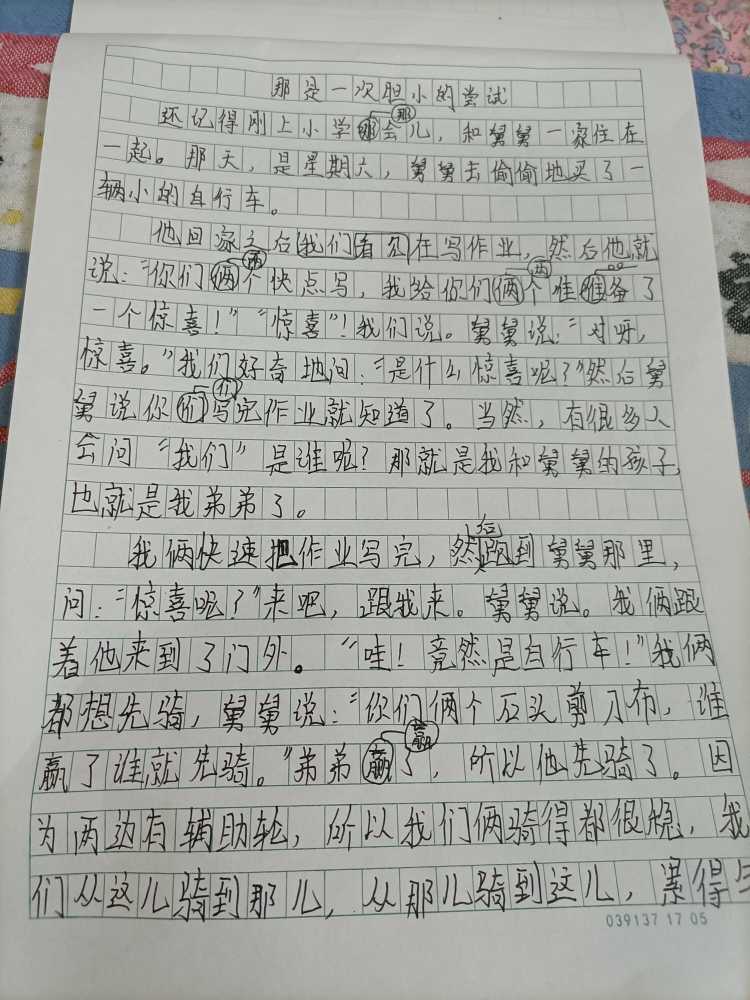 那是一次胆小的尝试
那
还记得刚上小学那会儿，和舅舅一家住在
一起。那天，是星期六，舅舅去偷偷地买了一
辆小的自行车。
他回家之后我们看见在写作业，然后他就
两 两
说：“你们俩个快点写，我给你们俩个准准备了
一个惊喜！”“惊喜”！我们说。舅舅说：“对呀，
惊喜。”我们好奇地问：“是什么惊喜呢？”然后舅
们
舅说你们写完作业就知道了。当然，有很多人
会问“我们”是谁呢？那就是我和舅舅的孩子，
也就是我弟弟了。
后
我俩快速把作业写完，然跑到舅舅那里，
问：“惊喜呢？”来吧，跟我来。舅舅说。我俩跟
着他来到了门外。“哇！竟然是自行车！”我俩
都想先骑，舅舅说：“你们俩个石头剪刀布，谁
赢
赢了谁就先骑。”弟弟赢了，所以他先骑了。因
为两边有辅助轮，所以我们俩骑得都很稳，我
们从这儿骑到那儿，从那儿骑到这儿，累得
039137 17 05